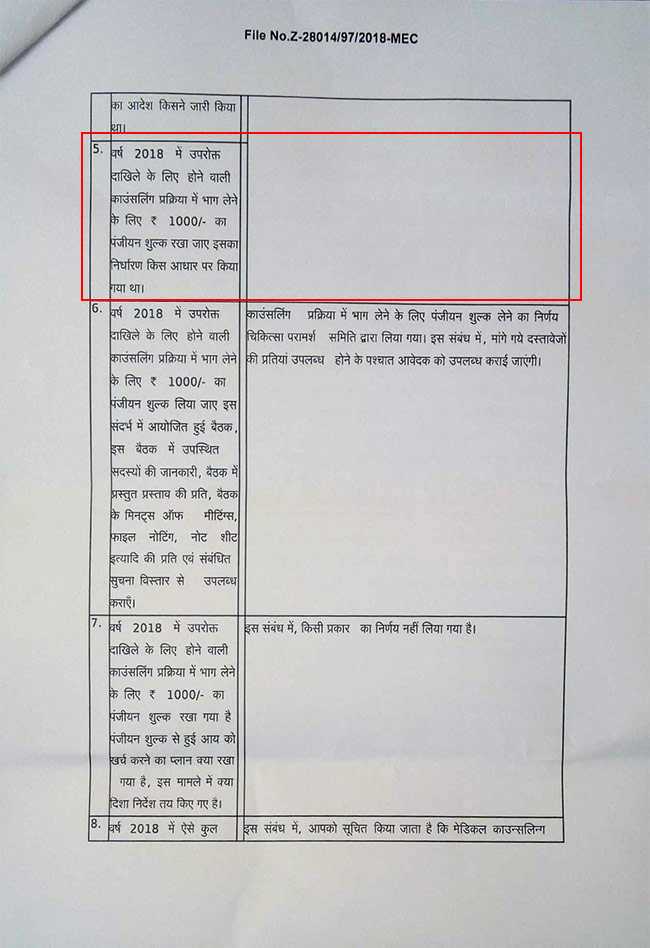 File No.Z-28014/97/2018-MEC
का आदेश किसने जारी किया
था।
5. वर्ष 2018 में उपरोक्त
दाखिले के लिए होने वाली
काउंसलिंग प्रक्रिया में भाग लेने
के लिए ₹ 1000/- का
पंजीयन शुल्क रखा जाए इसका
निर्धारण किस आधार पर किया
गया था।
6. वर्ष 2018 में उपरोक्त
दाखिले के लिए होने वाली
काउंसलिंग प्रक्रिया में भाग लेने
के लिए ₹ 1000/- का
पंजीयन शुल्क लिया जाए इस
संदर्भ में आयोजित हुई बैठक,
इस बैठक में उपस्थित
सदस्यों की जानकारी, बैठक में
प्रस्तुत प्रस्ताव की प्रति, बैठक
के मिनट्स ऑफ मीटिंग्स,
फाइल नोटिंग, नोट शीट
इत्यादि की प्रति एवं संबंधित
सुचना विस्तार से उपलब्ध
कराएँ।
काउंसलिंग प्रक्रिया में भाग लेने के लिए पंजीयन शुल्क लेने का निर्णय
चिकित्सा परामर्श समिति द्वारा लिया गया। इस संबंध में, मांगे गये दस्तावेजों
की प्रतियां उपलब्ध होने के पश्चात आवेदक को उपलब्ध कराई जाएंगी।
7. वर्ष 2018 में उपरोक्त
दाखिले के लिए होने वाली
काउंसलिंग प्रक्रिया में भाग लेने
के लिए ₹ 1000/- का
पंजीयन शुल्क रखा गया है
पंजीयन शुल्क से हुई आय को
खर्च करने का प्लान क्या रखा
गया है, इस मामले में क्या
दिशा निर्देश तय किए गए है।
इस संबंध में, किसी प्रकार का निर्णय नहीं लिया गया है।
8. वर्ष 2018 में ऐसे कुल
इस संबंध में, आपको सूचित किया जाता है कि मेडिकल काउन्सलिन्ग